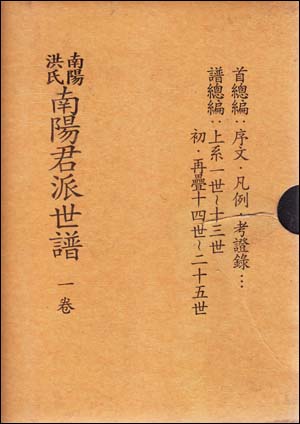 首總編:序文·凡例·考證錄…
譜總編:上系一世~十三世
初·再疊十四世~二十五世
南陽
洪氏
南陽君派世譜
一卷